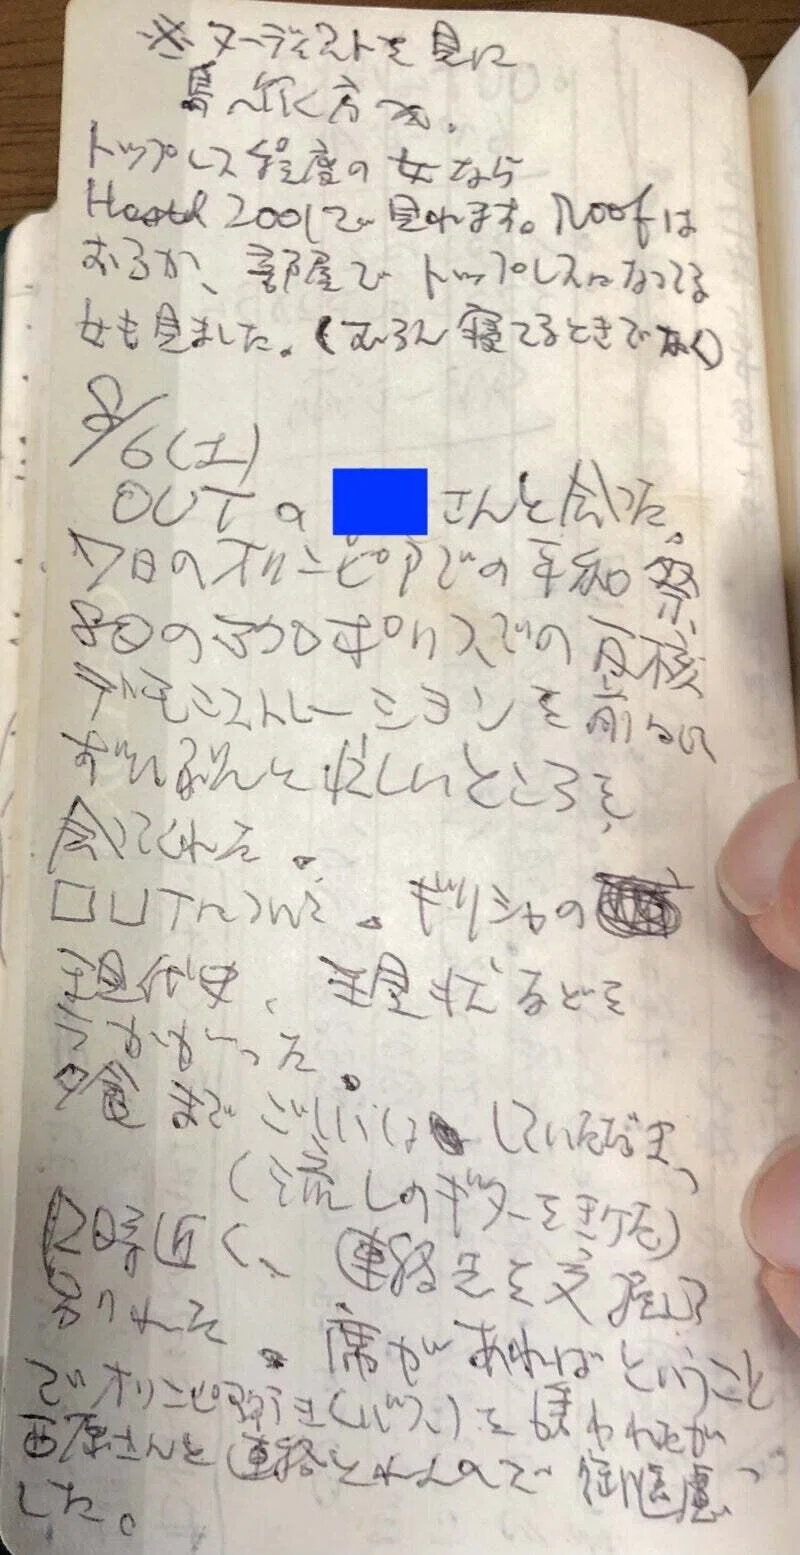 ※ヌーディストを見に
島へ行く方へ。
トップレス程度の女なら
Hostel 2001で見れます。Roofは
おろか、部屋でトップレスになってる
女も見ました。(むろん寝てるときでなく)
8/6(土)
OUTの さんと会った。
7日のオリンピアでの平和祭、
8日のアクロポリスでの反核
デモンストレーションを前に
ずいぶんと忙しいところを、
会ってくれた。
OUTについて。ギリシャの
現代史、現状などを
うかがった。
夕食まで していただき
(流しのギターをきける)
12時近く、連絡先を交
別れた。席があればということ
でオリンピア行き(バス)を われたが
西原さんと連絡とれんので
した。